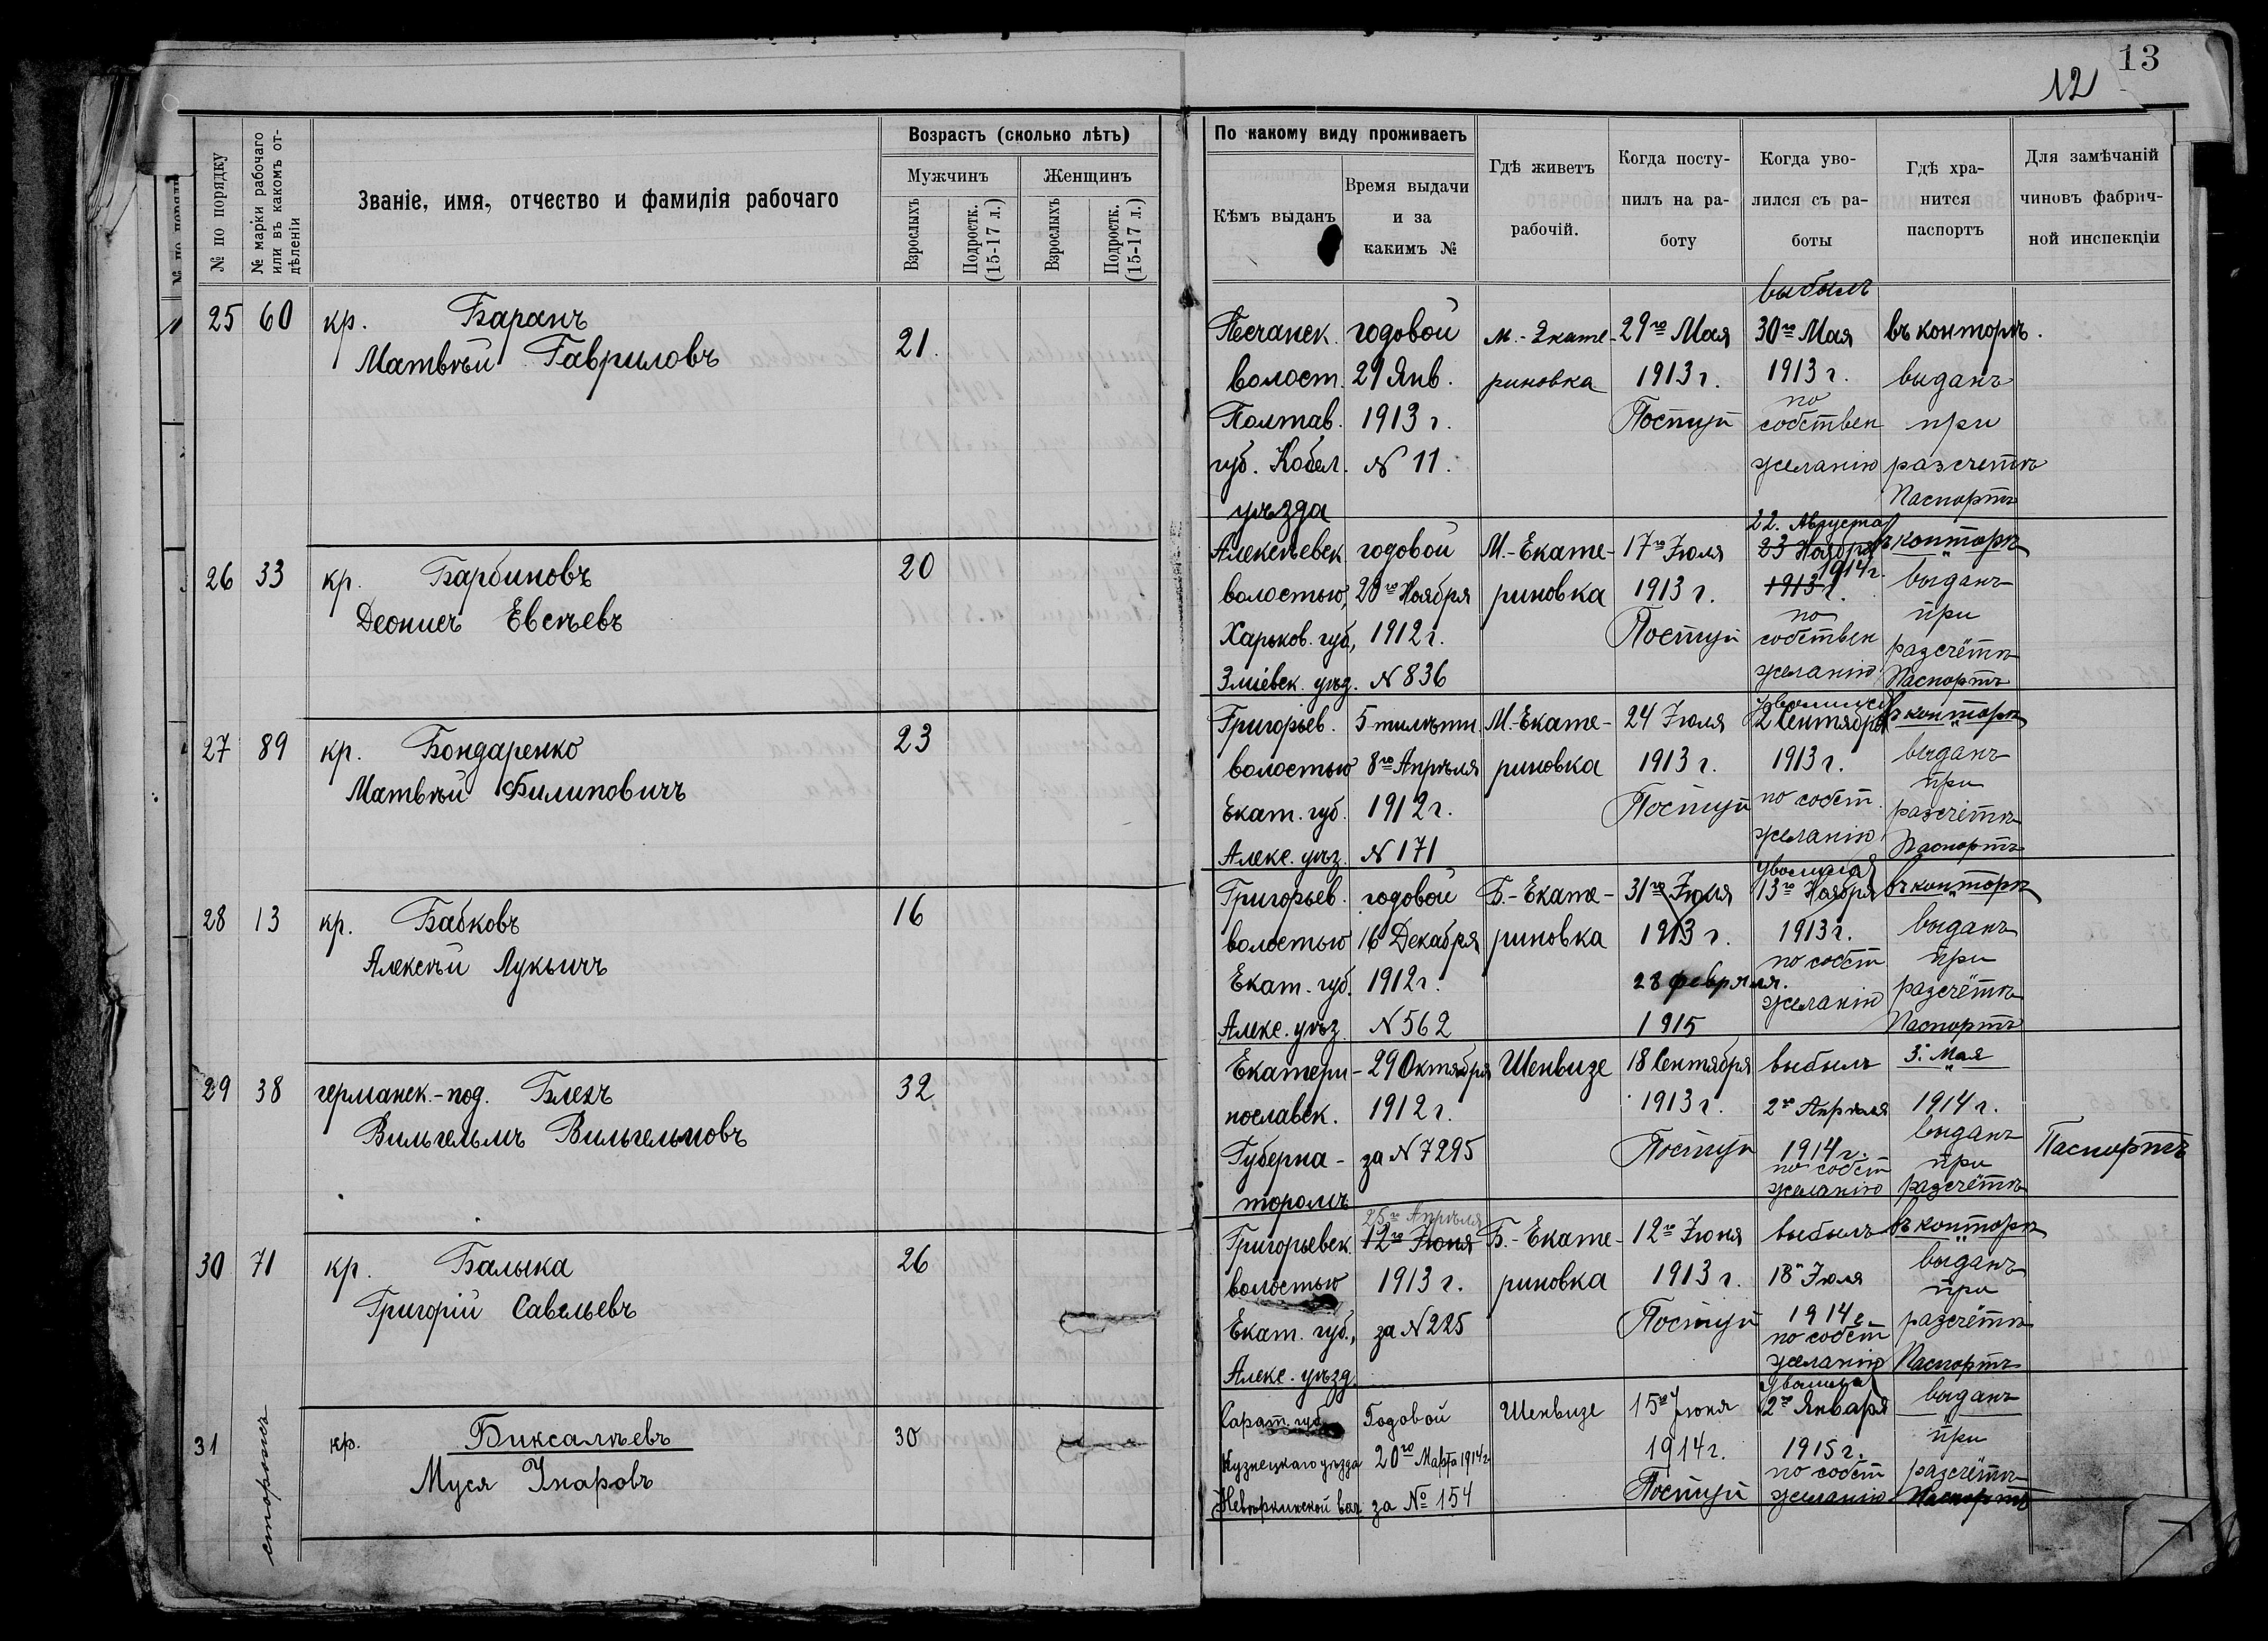 13
12
№ по порядку
№ марки рабочаго или въ какомъ от-дѣленіи
Званіе, имя, отчество и фамилія рабочаго
Возрастъ (сколько лѣтъ)
Мужчинъ
Женщинъ
Взрослыхъ
Подростк. (15-17 л.)
Взрослыхъ
Подростк. (15-17 л.)
По какому виду проживаетъ
Кѣмъ выданъ
Время выдачи
и за
какимъ №
Гдѣ живетъ
рабочій.
Когда посту-
пилъ на ра-
боту
Когда уво-
лился съ ра-
боты
Гдѣ хра-
нится
паспортъ
Для замѣчаній
чиновъ фабрич-
ной инспекціи
25 60 кр. Баранъ
Матвѣй Гавриловъ
21.
Песчанск.
волост.
Полтав.
губ. Кобел.
уѣзда
годовой
29 Янв.
1913 г.
№ 11.
м.-Екате-
риновка
29го Мая
1913 г.
Поступ
выбылъ
30го Мая
1913 г.
по
собствен
желанію
въ конторѣ.
выданъ
при
разсчетѣ
Паспортъ
26 33 кр. Барбиновъ
Деонисъ Евсѣевъ
20
Алексѣевск
волостью,
Харьков. губ,
Зміевск. уѣзд.
годовой
20го Ноября
1912 г.
№ 836
М.-Екате-
риновка
17го Іюля
1913 г.
Поступ
22. Августа
23 Ноября
1914 г.
1913 г.
по
собствен
желанію
въ конторѣ
выданъ
при
разсчётѣ
Паспортъ
27 89 кр. Бондаренко
Матвѣй Филиповичъ
23
Григорьев.
волостью
Екат. губ.
Алекс. уѣз.
5тилѣтн.
8го Апрѣля
1912 г.
№ 171
М.-Екате-
риновка
24 Іюля
1913 г.
Поступ
2 Сентября
1913 г.
по собст.
желанію
въ конторѣ
выданъ
при
разсчётѣ
Паспортъ
28 13 кр. Бабковъ
Алексѣй Лукьичъ
16
Григорьев.
волостью
Екат. губ.
Алекс. уѣз.
годовой
16 Декабря
1912 г.
№ 562
Б.-Екате-
риновка
31го Іюля
1913 г.
28 февряля.
1915
13го Ноября
1913 г.
по собст
желанію
въ конторѣ
выданъ
при
разсчётѣ
Паспортъ
29 38 германск.-под. Блекъ
Вильгельмъ Вильгельмовъ
32
Екатери-
нославск.
Губерна-
торомъ
29 Октября
1912 г.
за № 7295
Шенвизе
18 Сентября
1913 г.
Поступ
выбылъ
2го Апрѣля
1914 г.
по собст
желанію
3. Мая
1914 г.
выданъ
при
разсчётѣ
Паспортъ
30 71 кр. Балыка
Григорій Савельевъ
26
Григорьевск.
волостью
Екат. губ.,
Алекс. уѣзд.
25го Апрѣля
12го Іюня
1913 г.
за № 225
Б.-Екате-
риновка
12го Іюня
1913 г.
Поступ
выбылъ
18 Іюля
1914 г.
по собст
желанію
въ конторѣ
выданъ
при
разсчётѣ
Паспортъ
31 сторожъ кр. Биксалѣевъ
Муся Інаровъ
30
Сарат. губ.
Кузнецкаго уѣзда
Невѣркинской вол
Годовой
20го Марта 1914 г
за № 154
Шенвизе
15го Іюня
1914 г.
Поступ
2го Января
1915 г.
по собст
желанію
выданъ
при
разсчётѣ
Паспортъ